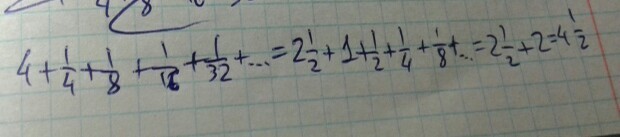 4 + 1/4 + 1/8 + 1/16 + 1/32 + ... = 2 1/2 + 1 + 1/2 + 1/4 + 1/8 + ... = 2 1/2 + 2 = 4 1/2